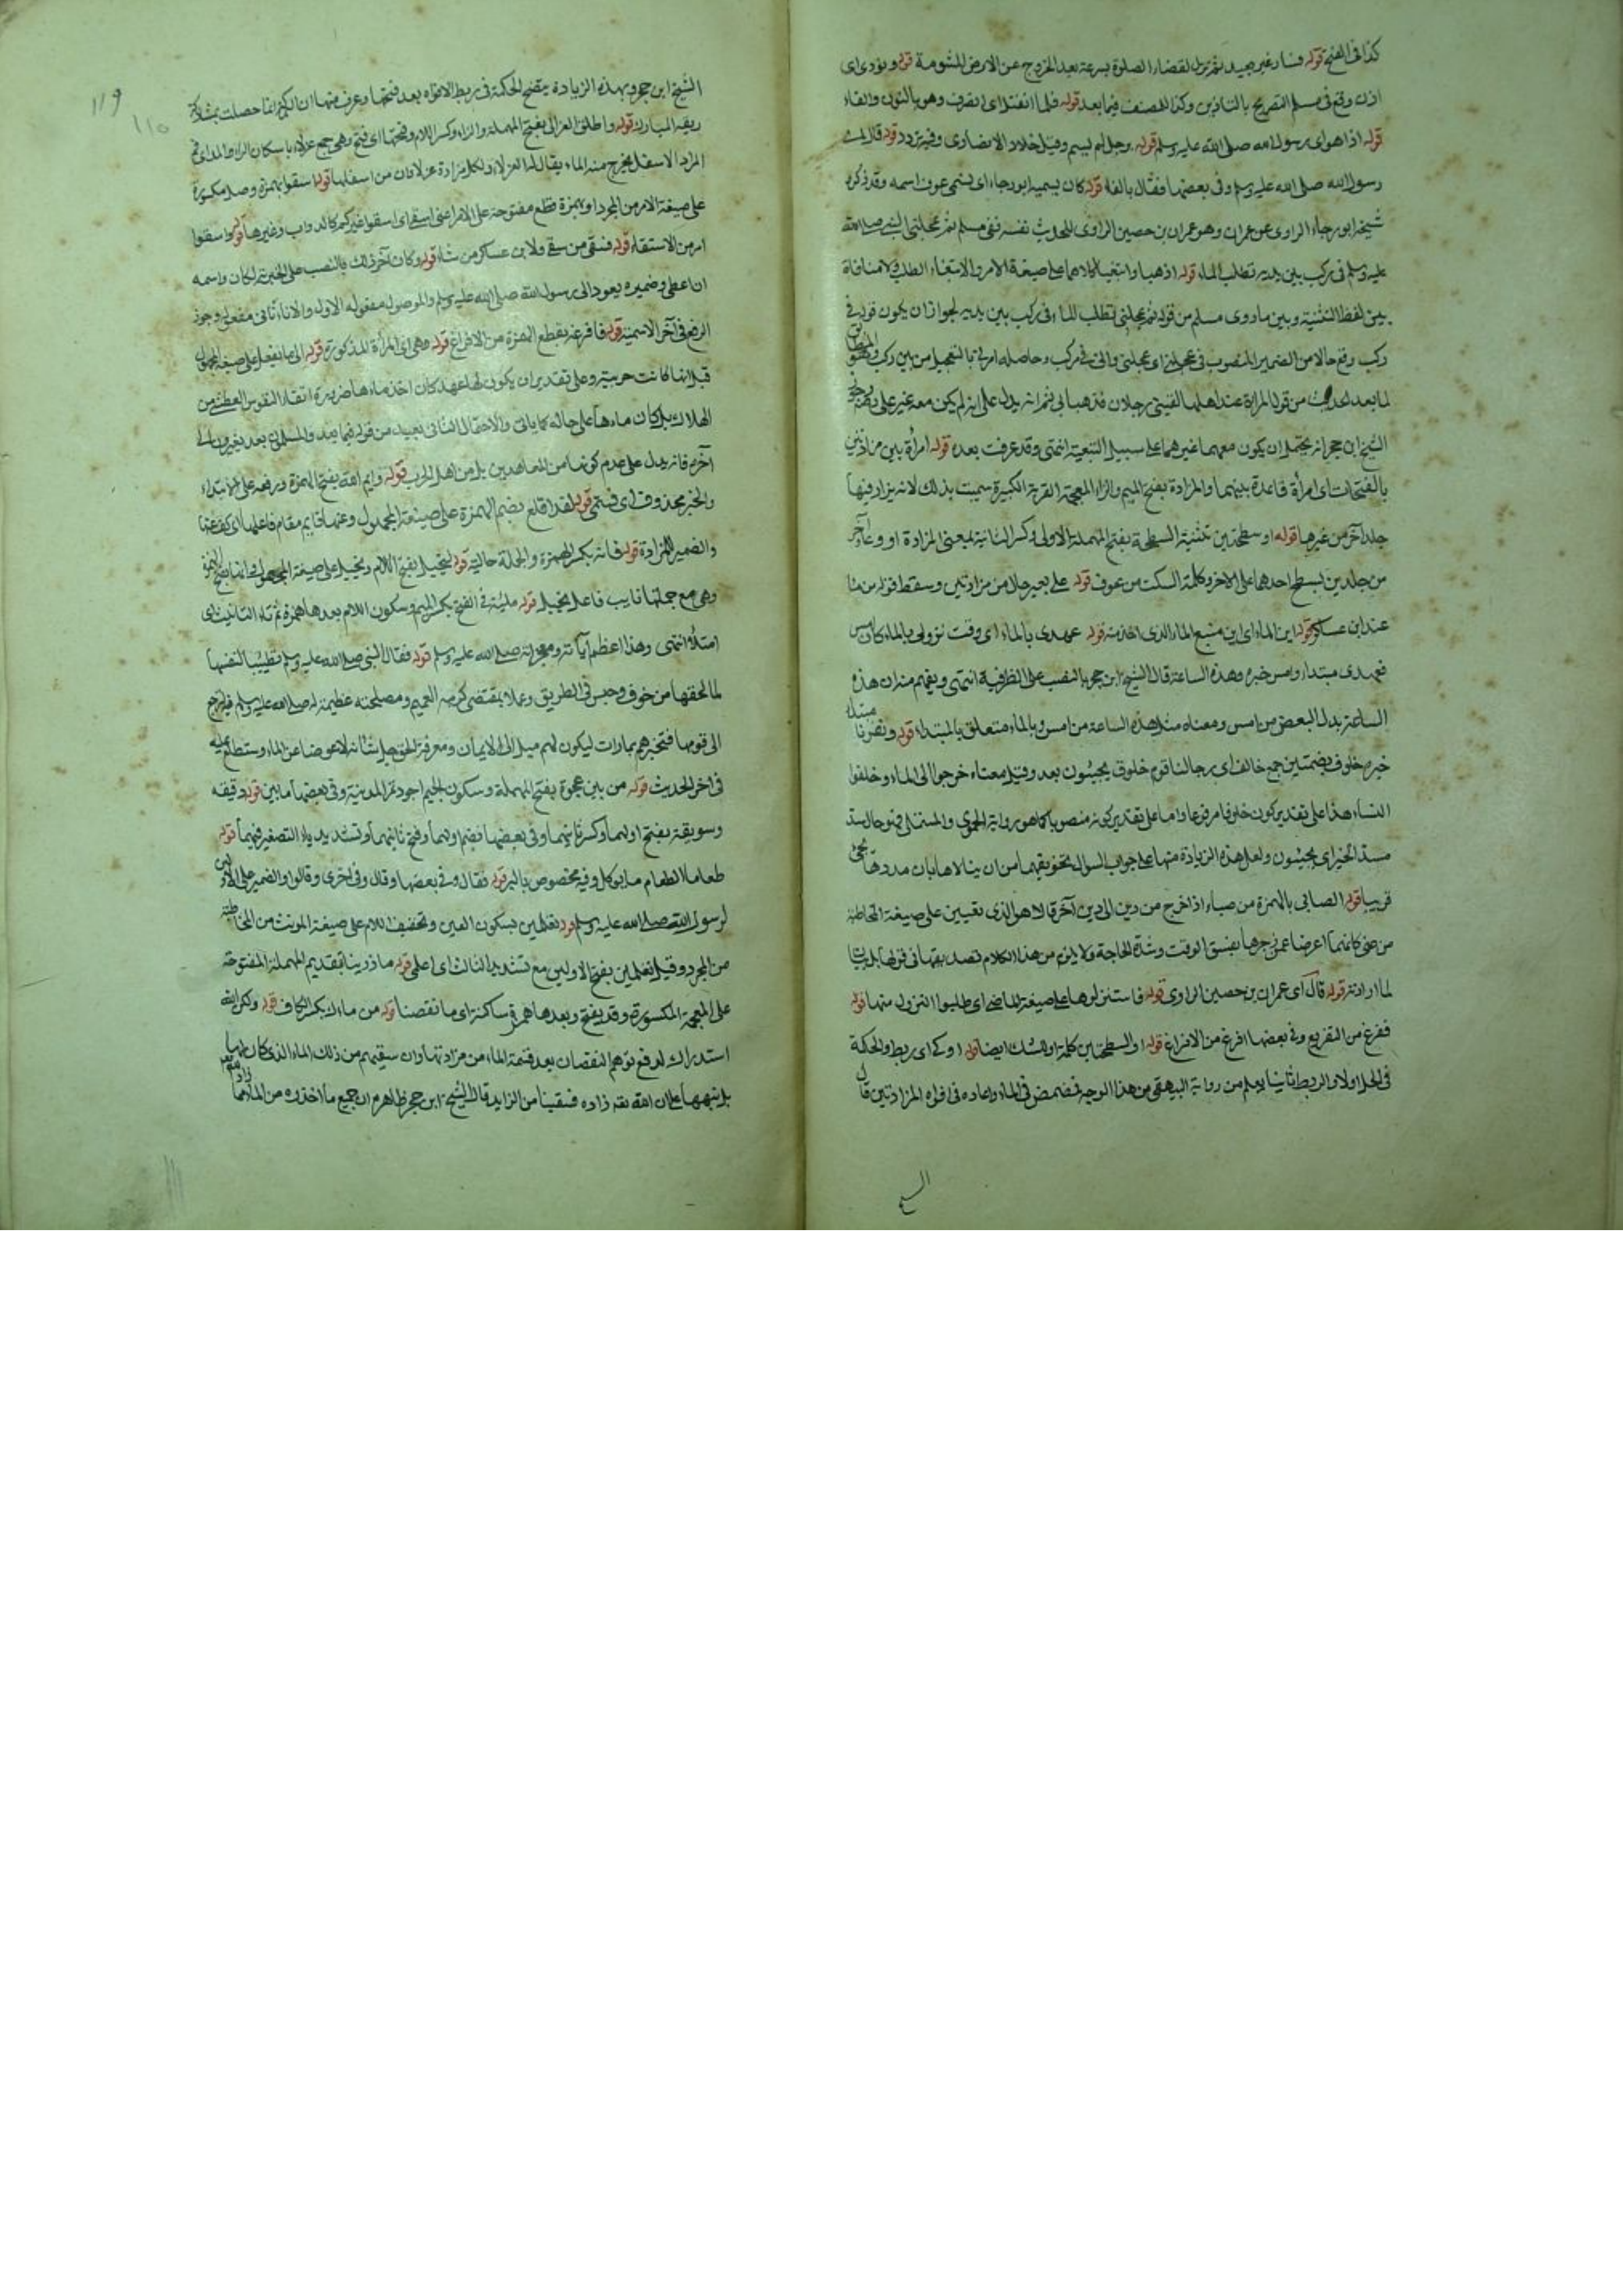 كذا في الفتح قوله فسار غير بعيد ثم نزل لقضاء الصلوة بسرعة بعد الخروج عن الارض المشومة قوله ونودي اي
اذن وقع في مسلم التصريح بالتاذين وكذا للمصنف فيما بعد قوله فلما انفتل اي انصرف وهو بالنون والفاء
قوله اذا هو اي رسول الله صلى الله عليه وسلم قوله رجل لم يسم وقيل خلاد الانصاري وفيه تردد قوله قال
رسول الله صلى الله عليه وسلم وفي بعضها فقال بالفاء قوله كان يسميه ابو رجاء اي يسمى عوف اسمه وقد ذكره
شيخه ابو رجاء الراوي عن عمران وهو عمران بن حصين الراوي للحديث نفسه ففي مسلم ثم عجلني النبي صلى الله
عليه وسلم في ركب بين يديه نطلب الماء قوله اذهبا وابتغيا كلاهما على صيغة الامر والابتغاء الطلب لا منافاة
بين لفظ التثنية وبين ما روى مسلم من قوله ثم عجلني نطلب الماء في ركب بين يديه لجواز ان يكون قوله في
ركب وقع حالا من الضمير المنصوب في عجلني اي عجلني وانى في ركب وحاصله امرني بالتعجيل من بين ركب
لما بعد الحديث من قول المراة عند اهلها لقيني رجلان فذهبا بي ثم انه يدل على انه لم يكن معه غير علي
الشيخ ابن حجر انه يحتمل ان يكون معهما غيرهما على سبيل التبعية انتهى وقد عرفت بعده قوله امرأة بين مزادتين
بالفتحات اي امرأة قاعدة بينهما والمزادة بفتح الميم والزاء المعجمة القربة الكبيرة سميت بذلك لانه يزاد فيها
جلد آخر من غيرها قوله او سطحتين تثنية السطحة بفتح المهملة الاولى وكسر الثانية بمعنى المزادة او وعاء آخر
من جلدين يسطح احدهما على الاخر وكلمة السكت من عوف قوله على بعير حال من مزادتين وسقط قوله من ماء
عند ابن عساكر قوله اين الماء اي اين منبع الماء الذي اخذت منه قوله عهدي بالماء اي وقت نزولي بالماء كان امس
فعهدي مبتداء وامس خبره وهذه الساعة قال الشيخ ابن حجر بالنصب على الظرفية انتهى ويفهم منه ان هذه
الساعة بدل البعض من امس ومعناه مثل هذه الساعة من امس وبالماء متعلق بالمبتداء قوله ونفرنا مبتداء
خبره خلوف بضمتين جمع خالف اي رجالنا قوم خلوف يجيئون بعد وقيل معناه خرجوا الى الماء وخلفوا
النساء هذا على تقدير كون خلوفا مرفوعا واما على تقدير كونه منصوبا كما هو رواية الحموي والمستملي فهو حال سد
مسد الخبر اي يجيئون ولعل هذه الزيادة منها على جواب السوال تخويفهما من ان ينالاها بان مددها يجئ
قريبا قوله الصابي بالهمزة من صباء اذا خرج من دين الى دين آخر قالا هو الذي تعنين على صيغة المخاطبة
من عنى كانهما اعرضا عن زجرها بضيق الوقت وشدة الحاجة ولا يلزم من هذا الكلام تصديقهما في قولها بل
لما ارادته قوله قال اي عمران بن حصين الراوي قوله فاستنزلوها على صيغة الماضي اي طلبوا النزول منها قوله
ففرغ من التفريغ وفي بعضها افرغ من الافراغ قوله او السطحتين كلمة او للشك ايضا قوله اوكى اي ربط والحكمة
في الحل اولا والربط ثانيا يعلم من رواية البيهقي من هذا الوجه فمضمض في الماء واعاده في افواه المزادتين قال
الشيخ
119
110
الشيخ ابن حجر وبهذه الزيادة يتضح الحكمة في ربط الافواه بعد فتحها وعرف منها ان البركة انما حصلت بمشاركة
ريقه المبارك قوله واطلق العزالى بفتح المهملة والزاء وكسر اللام وفتحها اي فتح وهي جمع عزلاء باسكان الزاء والمد اي فم
المزادة الاسفل يخرج منه الماء يقال لها العزلاء ولكل مزادة عزلاوان من اسفلها قوله اسقوا بهمزة وصل مكسورة
على صيغة الامر من المجرد او بهمزة قطع مفتوحة على الامر اعني اسقى اي اسقوا غيركم كالدواب وغيرها قوله واسقوا
امر من الاستقاء قوله فسقى من سقى ولابن عساكر من شاء قوله وكان آخر ذلك بالنصب على الخبرية لكان واسمه
ان اعطى وضميره يعود الى رسول الله صلى الله عليه وسلم والموصول مفعوله الاول والاناء ثاني مفعوله وجوز
الرفع في آخر الاسمية قوله فافرغه بقطع الهمزة من الافراغ قوله وهي اي المرأة المذكورة قوله الى ما يفعل على صيغة المجهول
قيل انها كانت حربية وعلى تقدير ان يكون لها عهد كان اخذ ماءها ضرورة انقاذ النفوس العطشى من
الهلاك بل كان ماءها على حاله كما ياتي والاحتمال الثاني بعيد من قوله فيما بعد والمسلمون بعد يغيرون الى
آخره فانه يدل على عدم كونها من المعاهدين بل من اهل الحرب قوله وايم الله بفتح الهمزة ورفعه على الابتداء
والخبر محذوف اي قسمي قوله لقد اقلع بضم الهمزة على صيغة المجهول وعنها قايم مقام فاعلها اي كف عنها
والضمير للمزادة قوله فانه بكسر الهمزة والجملة حالية قوله ليخيل بفتح اللام ويخيل على صيغة المجهول وانها بفتح الهمزة
وهي مع جملتها نايب فاعل يخيل قوله ملئة في الفتح بكسر الميم وسكون اللام بعدها همزة ثم تاء التانيث اي
امتلاء انتهى وهذا اعظم آياته ومعجزاته صلى الله عليه وسلم قوله فقال النبي صلى الله عليه وسلم تطييبا لنفسها
لما لحقها من خوف وحبس في الطريق وعملا بمقتضى كرمه العميم ومصلحته عظيمة له صلى الله عليه وسلم فيه لترجع
الى قومها فتخبرهم بما رات ليكون لهم ميل الى الايمان ومعرفة الحق جل شانه لا عوضا عن الماء وستطلع عليه
في اخر الحديث قوله من بين عجوة بفتح المهملة وسكون الجيم اجود تمر المدينة وفي بعضها ما بين قوله ودقيقة
وسويقة بفتح اولهما وكسر ثانيهما وفي بعضها بضم اولهما وفتح ثانيهما وتشديد ياء التصغير فيهما قوله
طعاما الطعام ما يوكل وفيه مخصوص بالبر قوله فقال وفي بعضها وقال وفي اخرى وقالوا والضمير على الاول
لرسول الله صلى الله عليه وسلم قوله تعلمين بسكون العين وتخفيف اللام على صيغة المونث من المخاطبة
من المجرد وقيل تعلمين بفتح الاولين مع تشديد الثالث اي اعلمي قوله ما ذرينا بتقديم المهملة المفتوحة
على المعجمة المكسورة وقد يفتح وبعدها همزة ساكنة اي ما نقصنا قوله من مائك بكسر الكاف قوله ولكن الله
استدراك لدفع توهم النقصان بعد قسمة الماء من مزادتها وان سقيهم من ذلك الماء الذي كان لها
بل نبهها على ان الله تعالى زاده فسقينا من الزايد قال الشيخ ابن حجر ظاهره ان جميع ما اخذوه من الماء